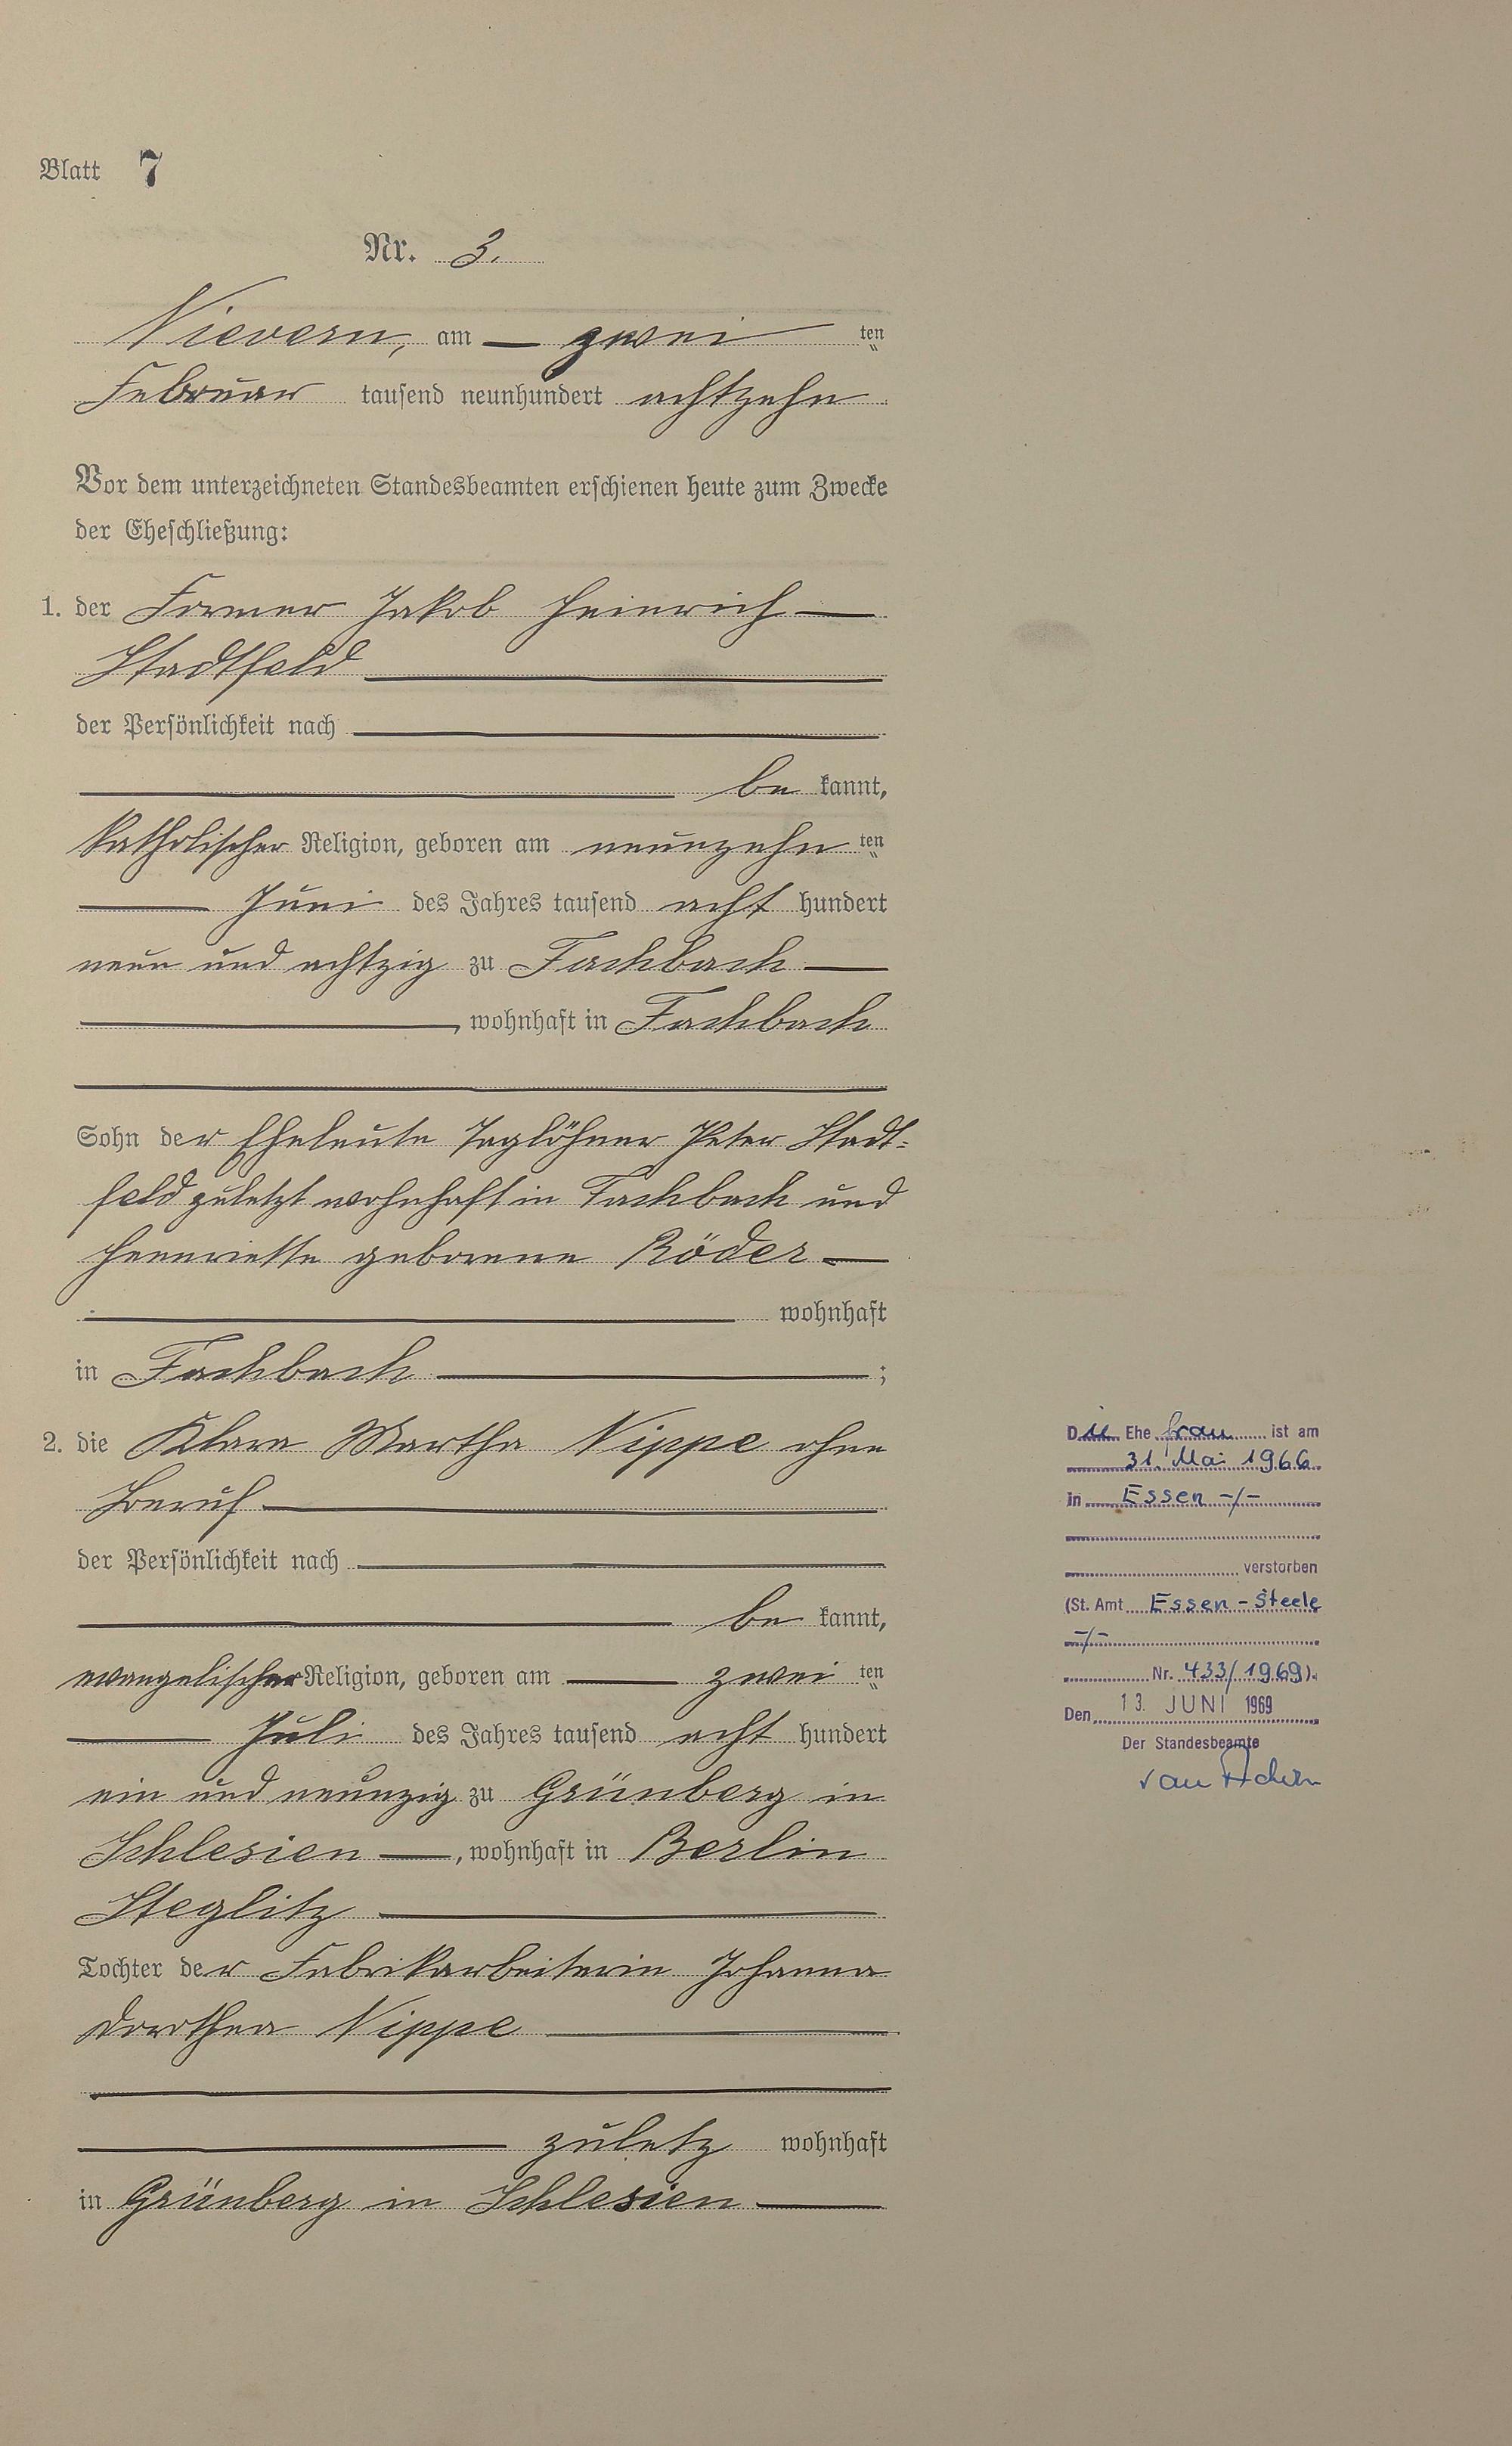 Blatt 7
Nr. 3.
Nievern, am — zwei ten
Februar tausend neunhundert achtzehn
Vor dem unterzeichneten Standesbeamten erschienen heute zum Zwecke
der Eheschließung:
1. der Former Jakob Heinrich —
Stadtfeld —
der Persönlichkeit nach —
— be kannt,
katholischer Religion, geboren am neunzehn ten
— Juni des Jahres tausend acht hundert
neun und achtzig zu Fachbach —
—, wohnhaft in Fachbach
Sohn der Eheleute Taglöhner Peter Stadt-
feld zuletzt wohnhaft in Fachbach und
Henriette geborene Röder —
— wohnhaft
in Fachbach — ;
2. die Klara Martha Nippe ohne
Beruf —
der Persönlichkeit nach —
— be kannt,
evangelischer Religion, geboren am — zwei ten
— Juli des Jahres tausend acht hundert
ein und neunzig zu Grünberg in
Schlesien —, wohnhaft in Berlin
Steglitz —
Tochter der Fabrikarbeiterin Johanna
Dorothea Nippe —
— zuletz wohnhaft
in Grünberg in Schlesien —
Die Ehe frau ist am
31. Mai 1966
in Essen -/-
verstorben
(St. Amt Essen-Steele
-/-
Nr. 433/1969).
Den 13. JUNI 1969
Der Standesbeamte